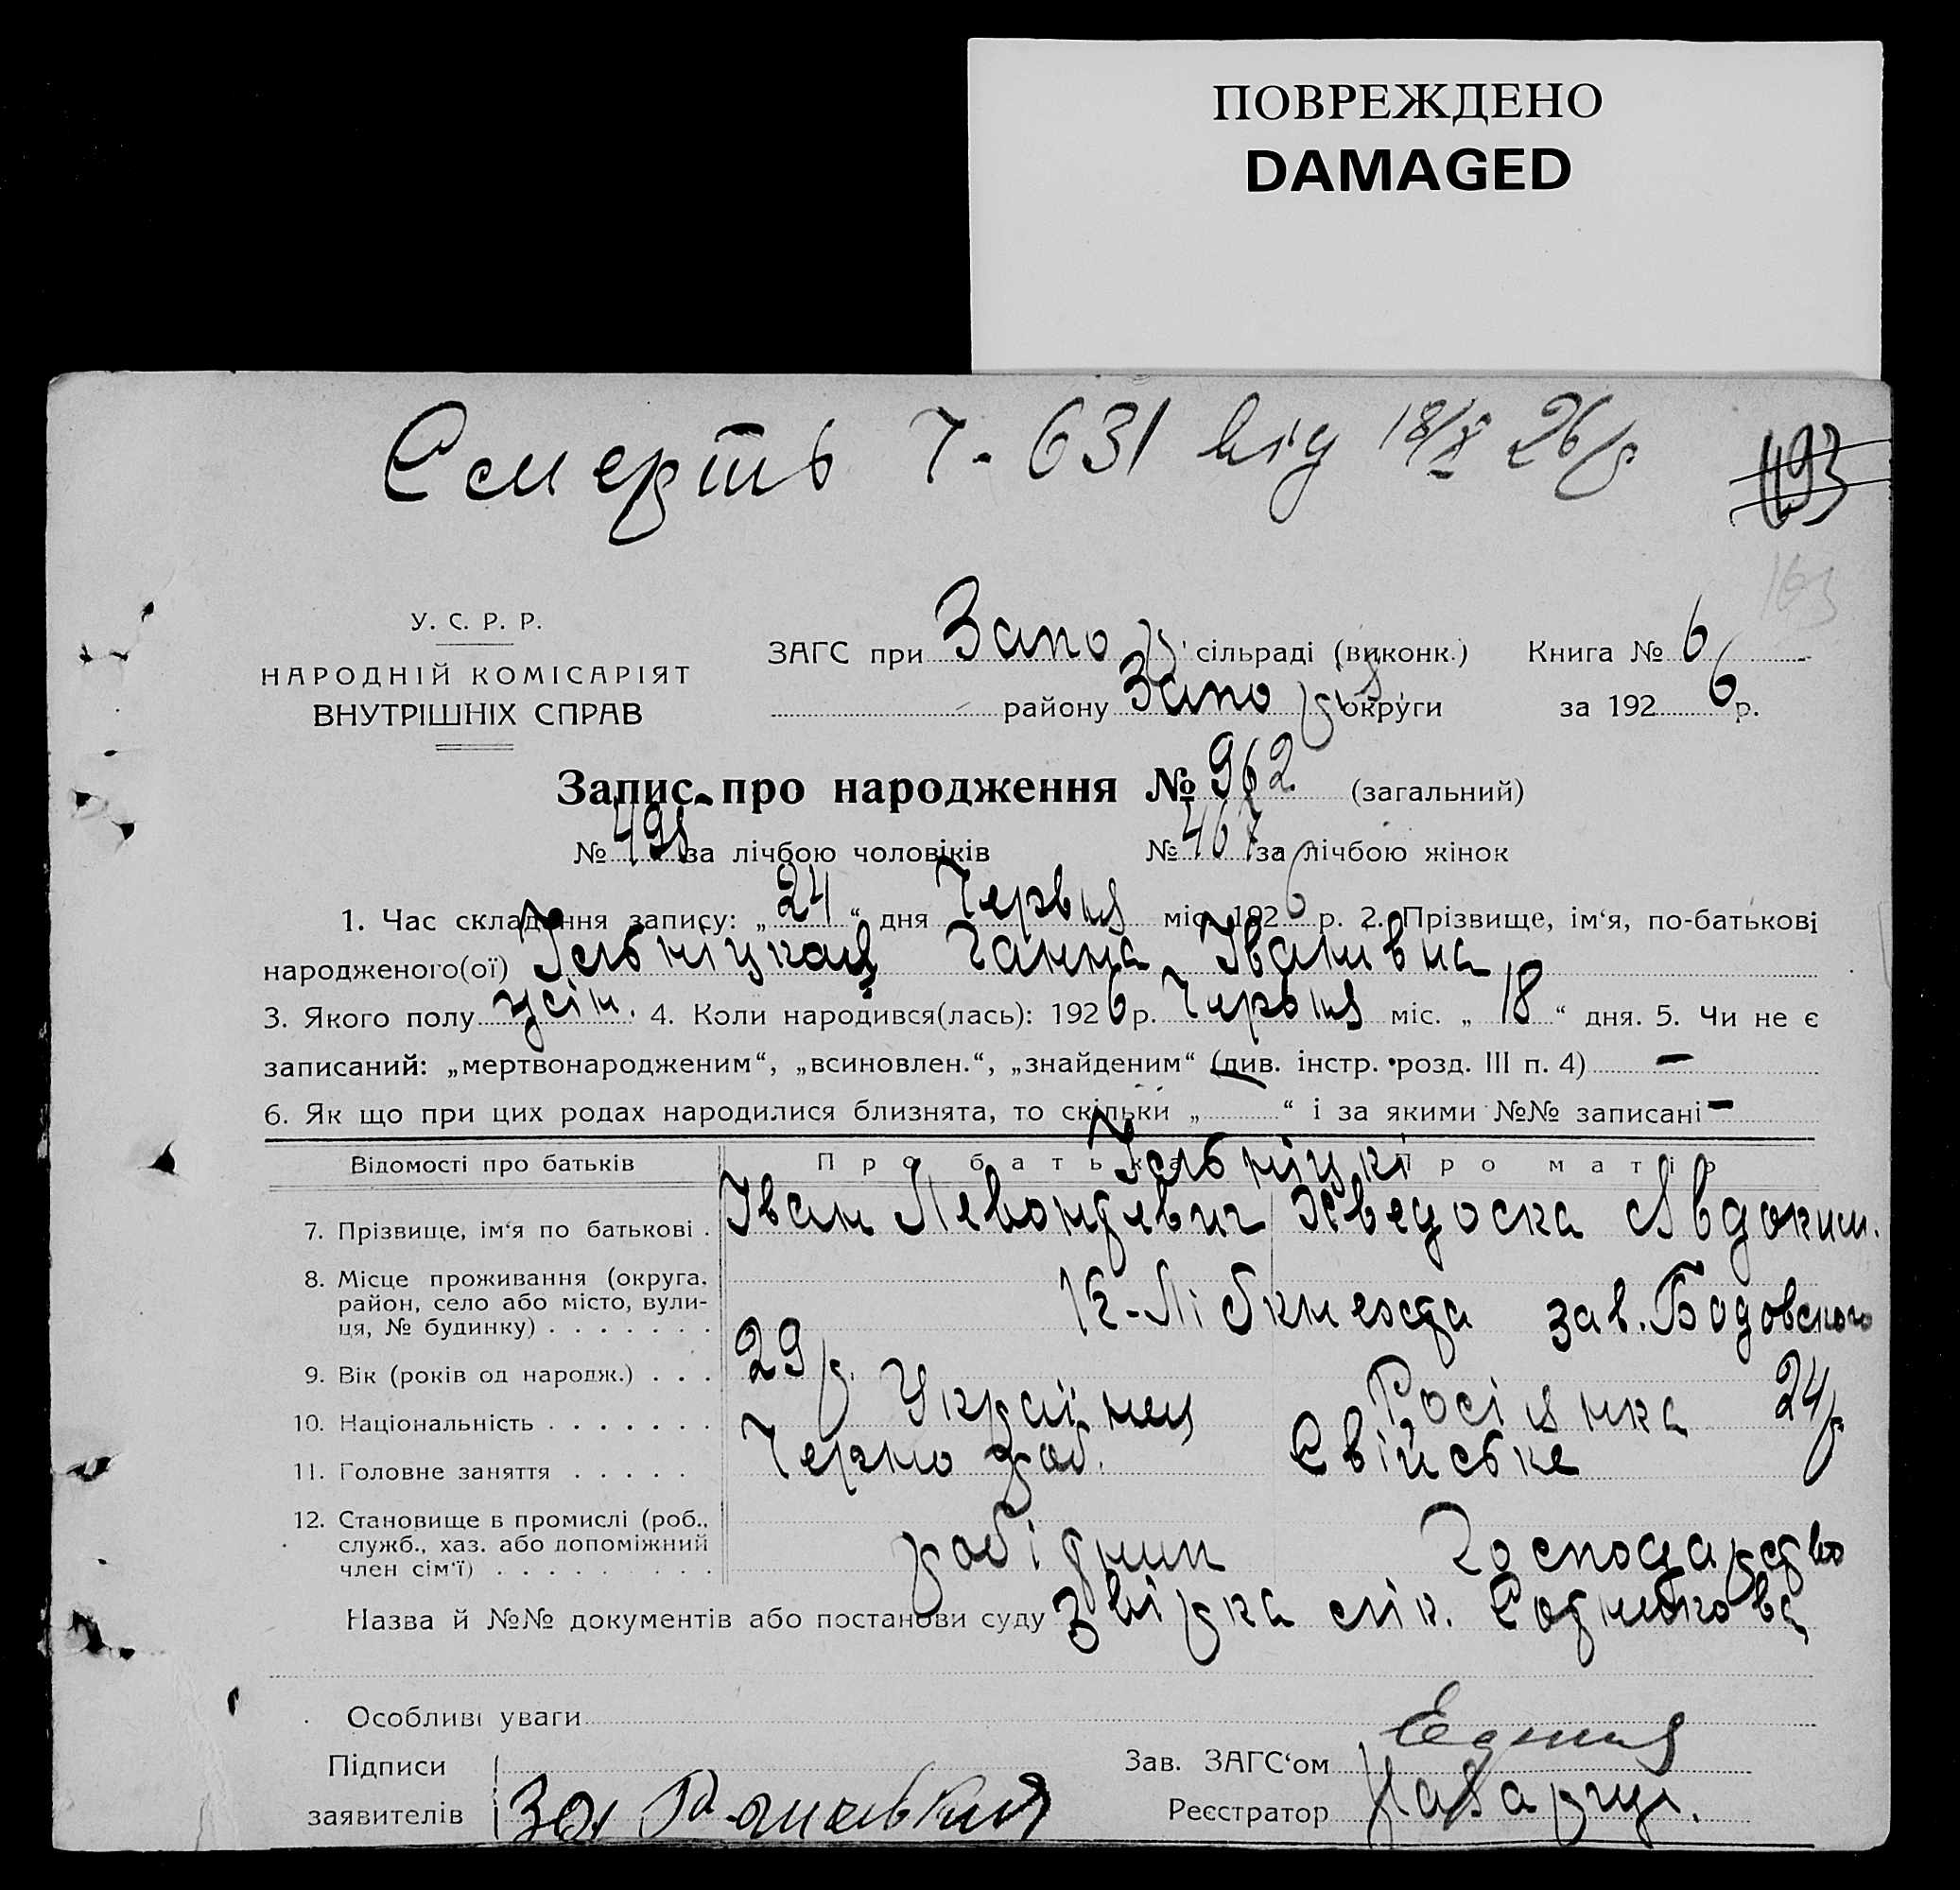 ПОВРЕЖДЕНО
DAMAGED
Смерть Ч- 631 від 18/X 26 р
493
163
У. С. Р. Р.
НАРОДНІЙ КОМІСАРІЯТ
ВНУТРІШНІХ СПРАВ
ЗАГС при Запор. сільраді (виконк.) Книга № 6
району Запоріз округи за 192 6 р.
Запис про народження № 962 (загальний)
№ 495 за лічбою чоловіків № 467 за лічбою жінок
1. Час складення запису: „ 24 “ дня Червня міс. 192 6 р. 2. Прізвище, ім‘я, по-батькові
народженого(ої) Ільніцкая Ганна Іванивна
3. Якого полу жін. 4. Коли народився(лась): 192 6 р. Червня міс. „ 18 “ дня. 5. Чи не є
записаний: „мертвонародженим“, „всиновлен.“, „знайденим“ (див. інстр. розд. III п. 4) —
6. Як що при цих родах народилися близнята, то скільки „ “ і за якими №№ записані —
Відомості про батьків Про батька Про матір
Ільніцкі
7. Прізвище, ім‘я по батькові . Іван Левонтєвич Хведоска Явдоким.
8. Місце проживання (округа, район, село або місто, вулиця, № будинку) . . . . . . . К-Лібкнехта зав. Бадовского
9. Вік (років од народж.) . . . 29 р. 24 р
10. Національність . . . . . . . Українец Росіянка
11. Головне заняття . . . . . Чернороб. Свійське
12. Становище в промислі (роб., служб., хаз. або допоміжний член сім‘ї) . . . . . . . . . робітник Господарство
Назва й №№ документів або постанови суду Звірка лік.
Особливі уваги
Підписи
заявителів
Зав. ЗАГС‘ом
Реєстратор